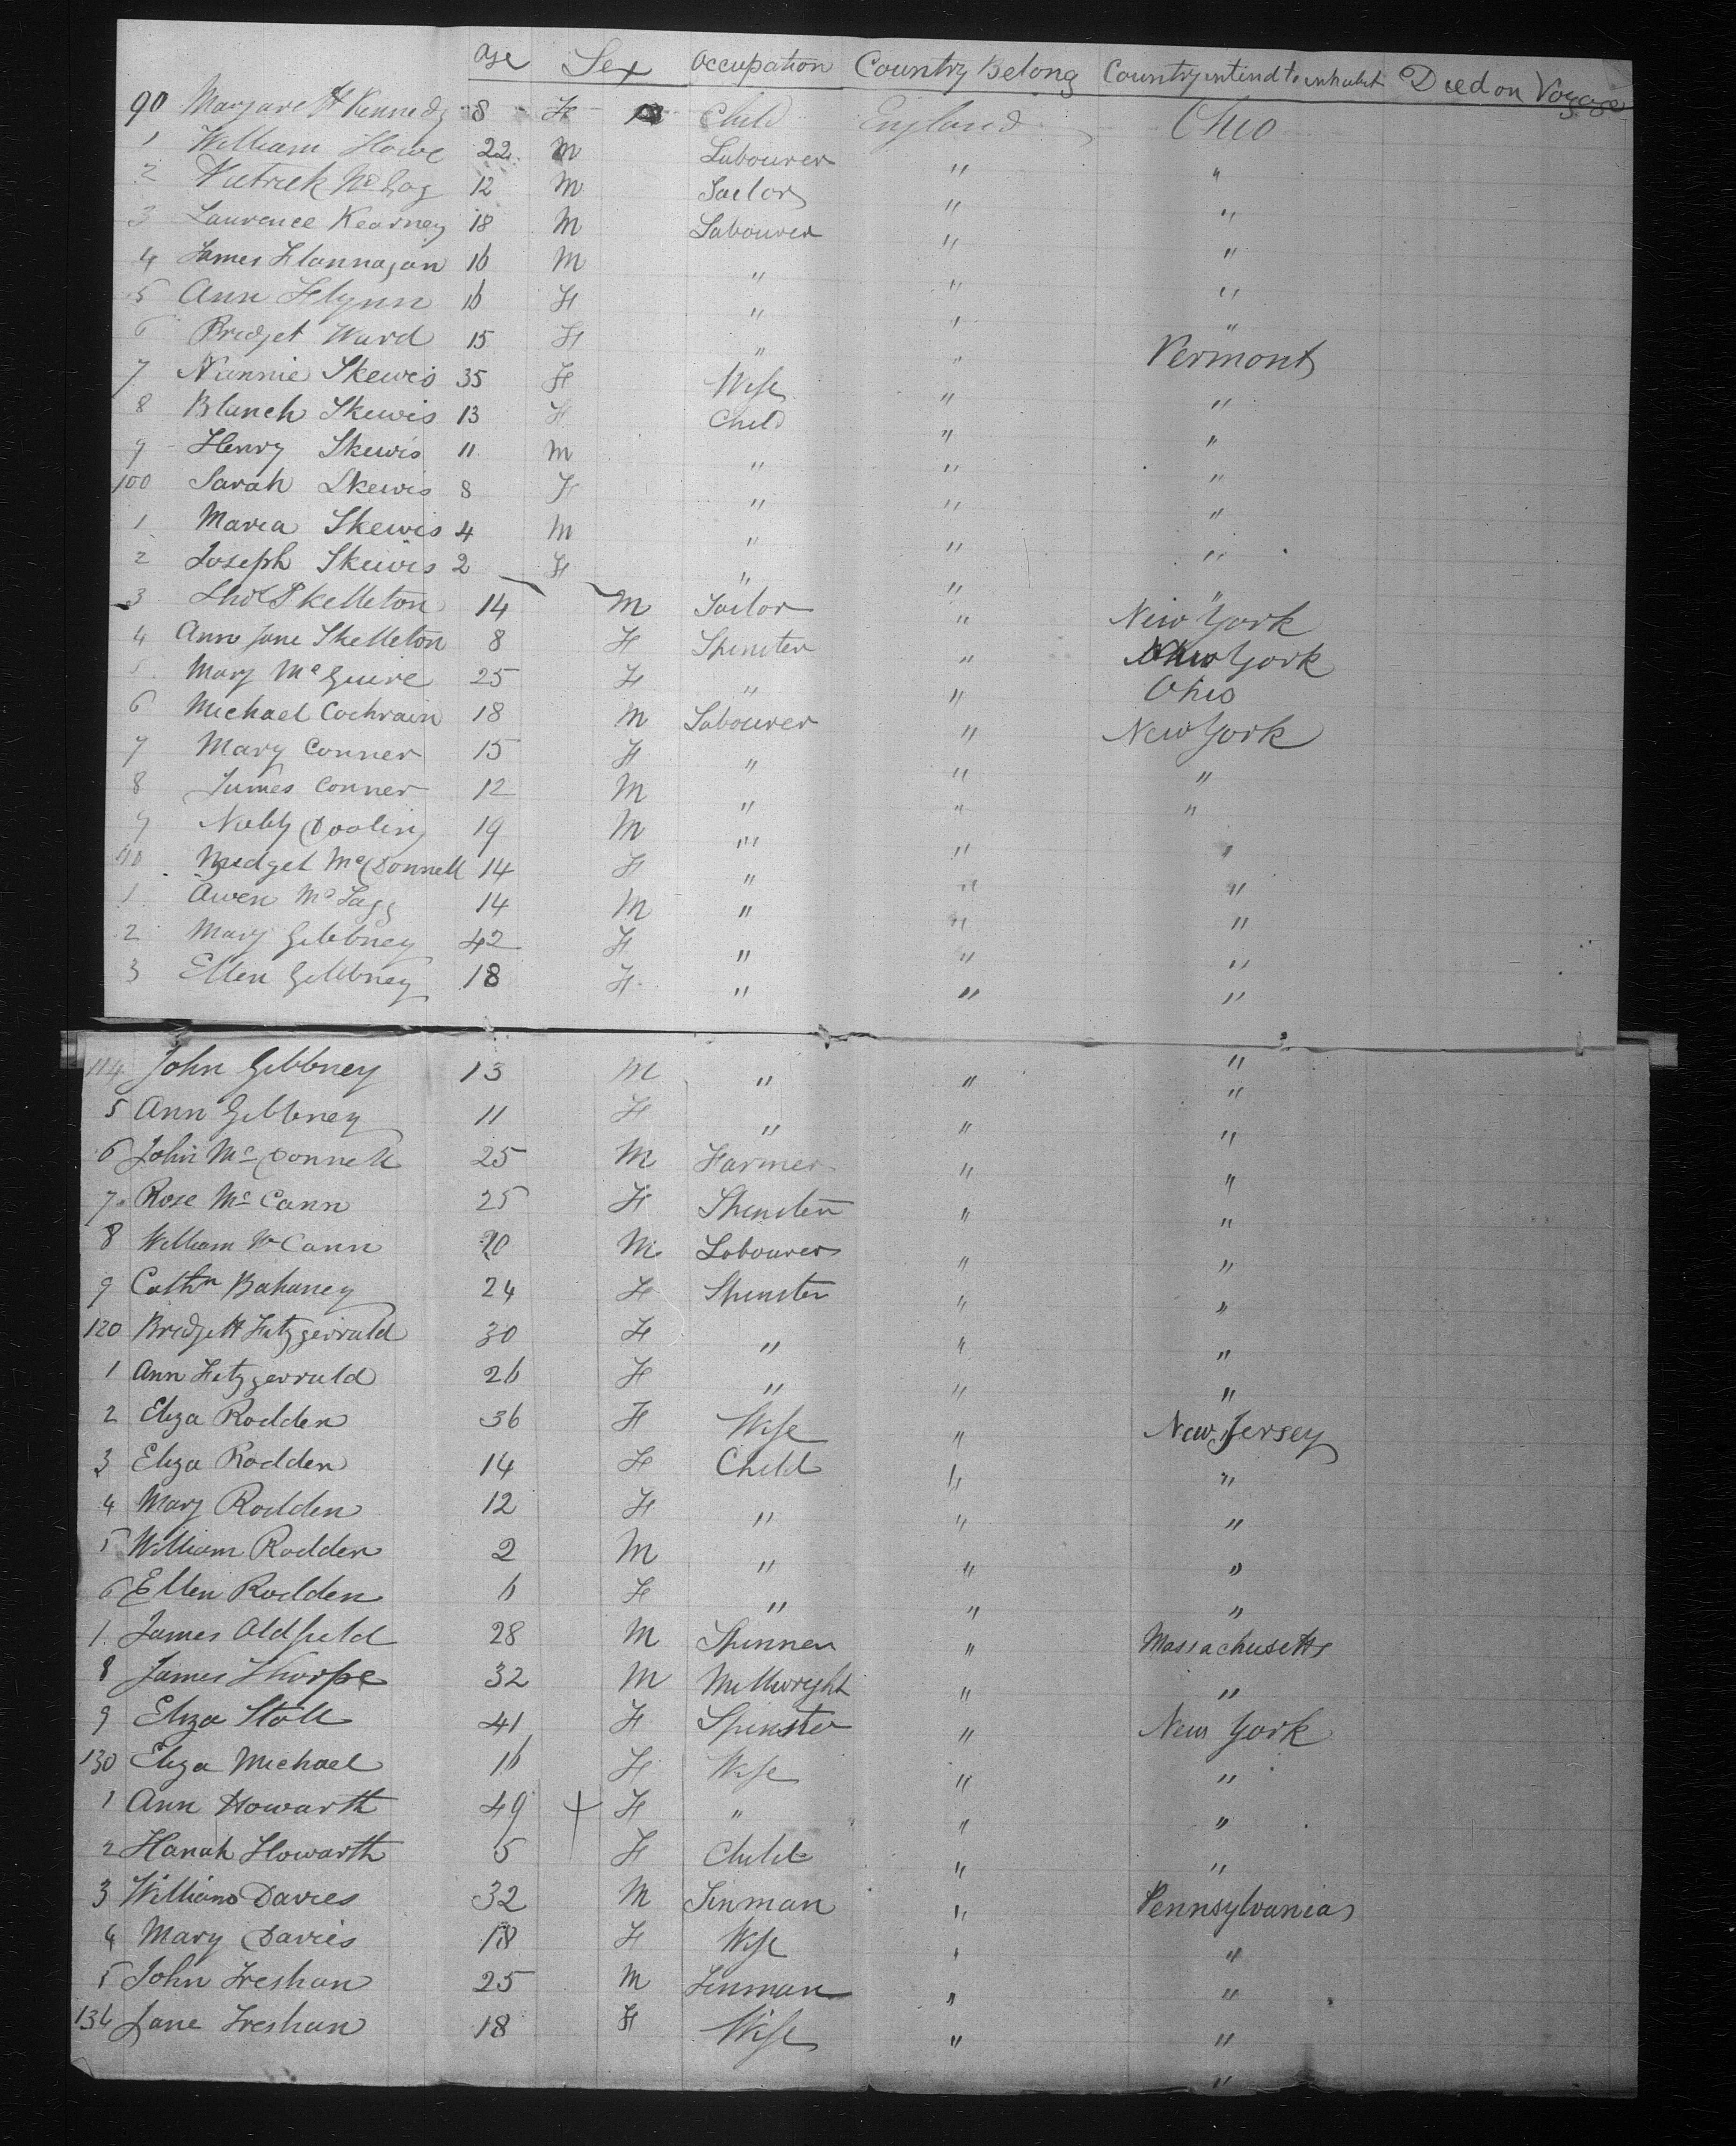 Age Sex Occupation Country Belong Country intend to inhabit Died on Voyage
90 Margarett Kennedy 8 F Child England Ohio
1 William Howe 22 M Labourer " "
2 Patrick 12 M Tailor " "
3 Laurence Kearney 18 M Labourer " "
4 James Flannagan 16 M " " "
5 Ann Flynn 16 F " " "
6 Bridget Ward 15 F " " "
7 Nannie Skewis 35 F Wife " Vermont
8 Blanch Skewis 13 F Child " "
9 Henry Skewis 11 M " " "
100 Sarah Skewis 8 F " " "
1 Maria Skewis 4 M " " "
2 Joseph Skewis 2 F " " "
3 Skelleton 14 M Tailor " New York
4 Ann Jane Skelleton 8 F Spinster " New York
5 Mary McGuire 25 F " " Ohio
6 Michael Cochrain 18 M Labourer " New York
7 Mary Conner 15 F " " "
8 James Conner 12 M " " "
9 Dooling 19 M " " "
110 McDonnell 14 F " " "
1 Owen 14 M " " "
2 Mary Gibbney 42 F " " "
3 Ellen Gibbney 18 F " " "
114 John Gibbney 13 M " " "
5 Ann Gibbney 11 F " " "
6 John McDonnell 25 M Farmer " "
7 Rose McCann 25 F Spinster " "
8 William McCann 20 M Labourer " "
9 Cathn Bahaney 24 F Spinster " "
120 Bridgett Fitzgerrald 30 F " " "
1 Ann Fitzgerrald 26 F " " "
2 Eliza Rodden 36 F Wife " New Jersey
3 Eliza Rodden 14 F Child " "
4 Mary Rodden 12 F " " "
5 William Rodden 2 M " " "
6 Ellen Rodden 6 F " " "
7 James Oldfield 28 M Spinner " Massachusetts
8 James Thorpe 32 M Millwright " "
9 Eliza Stott 41 F Spinster " New York
130 Eliza Michael 16 F Wife " "
1 Ann Howarth 49 + F " " "
2 Hanah Howarth 5 F Child " "
3 William Davies 32 M Tinman " Pennsylvania
4 Mary Davies 18 F Wife " "
5 John Treshan 25 M Tinman " "
136 Jane Treshan 18 F Wife " "
"